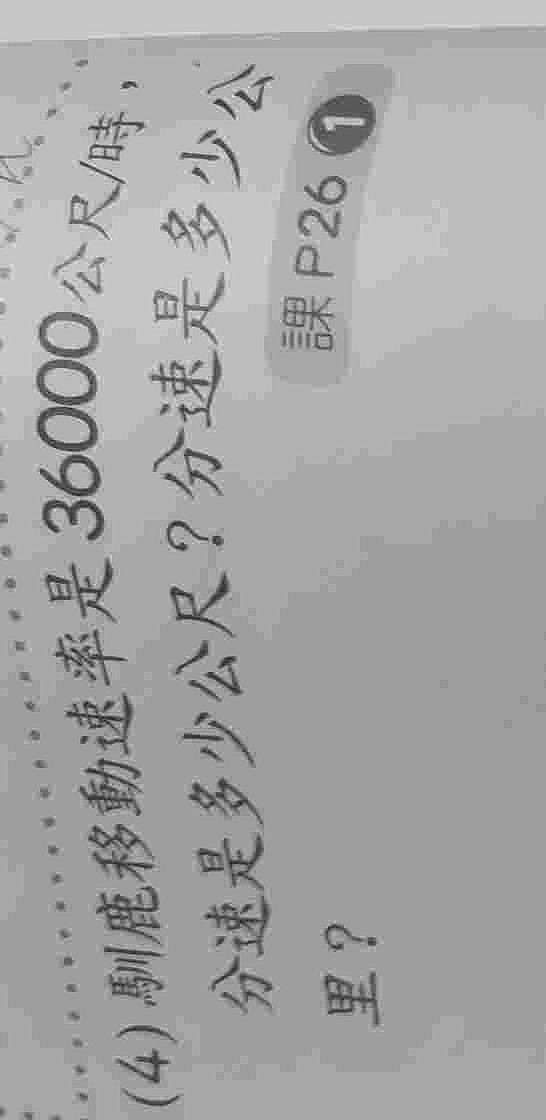 (4) 馴鹿移動速率是36000公尺/時，
分速是多少公尺？分速是多少公
里？
課P26 1